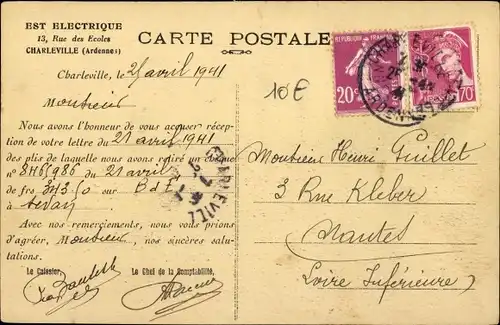 EST ELECTRIQUE
13, Rue des Ecoles
CHARLEVILLE (Ardennes)
CARTE POSTALE
Charleville, le 25 avril 1941
Monsieur
Nous avons l'honneur de vous accuser récep-
tion de votre lettre du 21 avril 1941
des plis de laquelle nous avons retiré un chèque
n° 8465986 du 21 avril
de frs 343.50 sur B d F
à Sedan
Avec nos remerciements, nous vous prions
d'agréer, Monsieur, nos sincères salu-
tations.
Le Caissier,
Le Chef de la Comptabilité,
CHARLEVILLE
10€
20c
70
Monsieur Henri Guillet
3 Rue Kleber
Nantes
(Loire Inférieure)